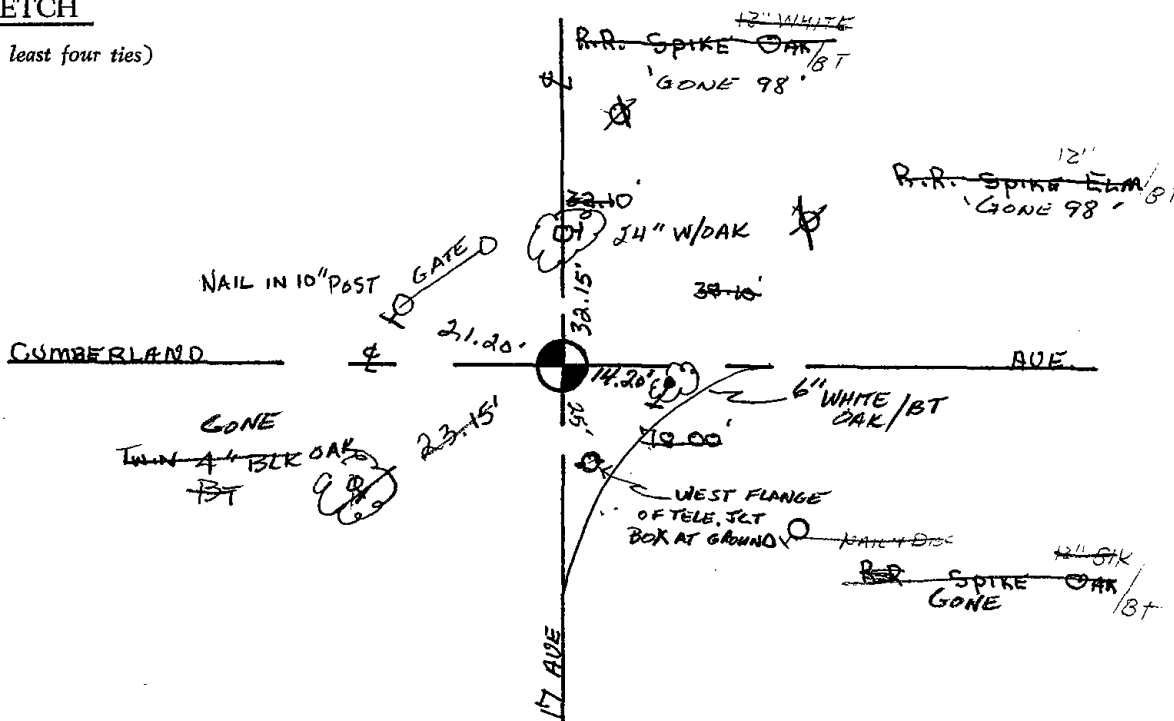 ETCH
least four ties)
12" WHITE
R.R. SPIKE OAK/BT
'GONE 98'
℄
12"
R.R. SPIKE ELM/BT
'GONE 98'
32.10'
24" W/OAK
GATE
NAIL IN 10" POST
32.15'
21.20'
CUMBERLAND
℄
14.20'
AVE.
6" WHITE
OAK/BT
GONE
TWIN 4" BLK OAK
BT
23.15'
70.00'
WEST FLANGE
OF TELE. JCT
BOX AT GROUND
NAIL & DISC
12" BLK
SPIKE OAK/BT
GONE
17 AVE